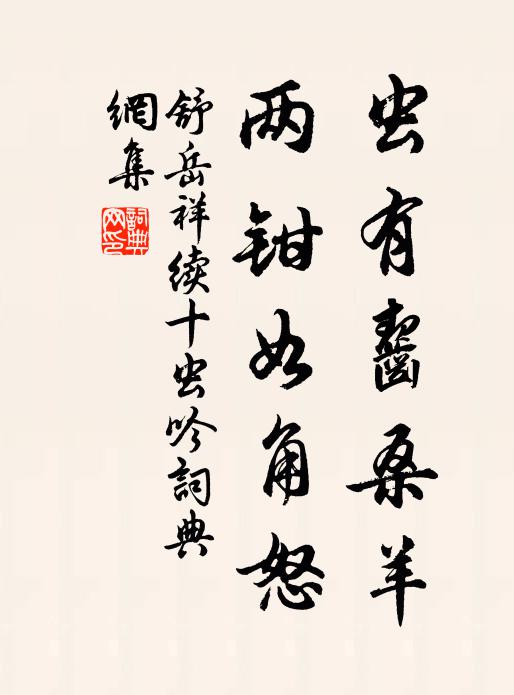 虫有齧桑羊
两钳如角怒
舒岳祥续十虫吟詞典
網集
詞典网印